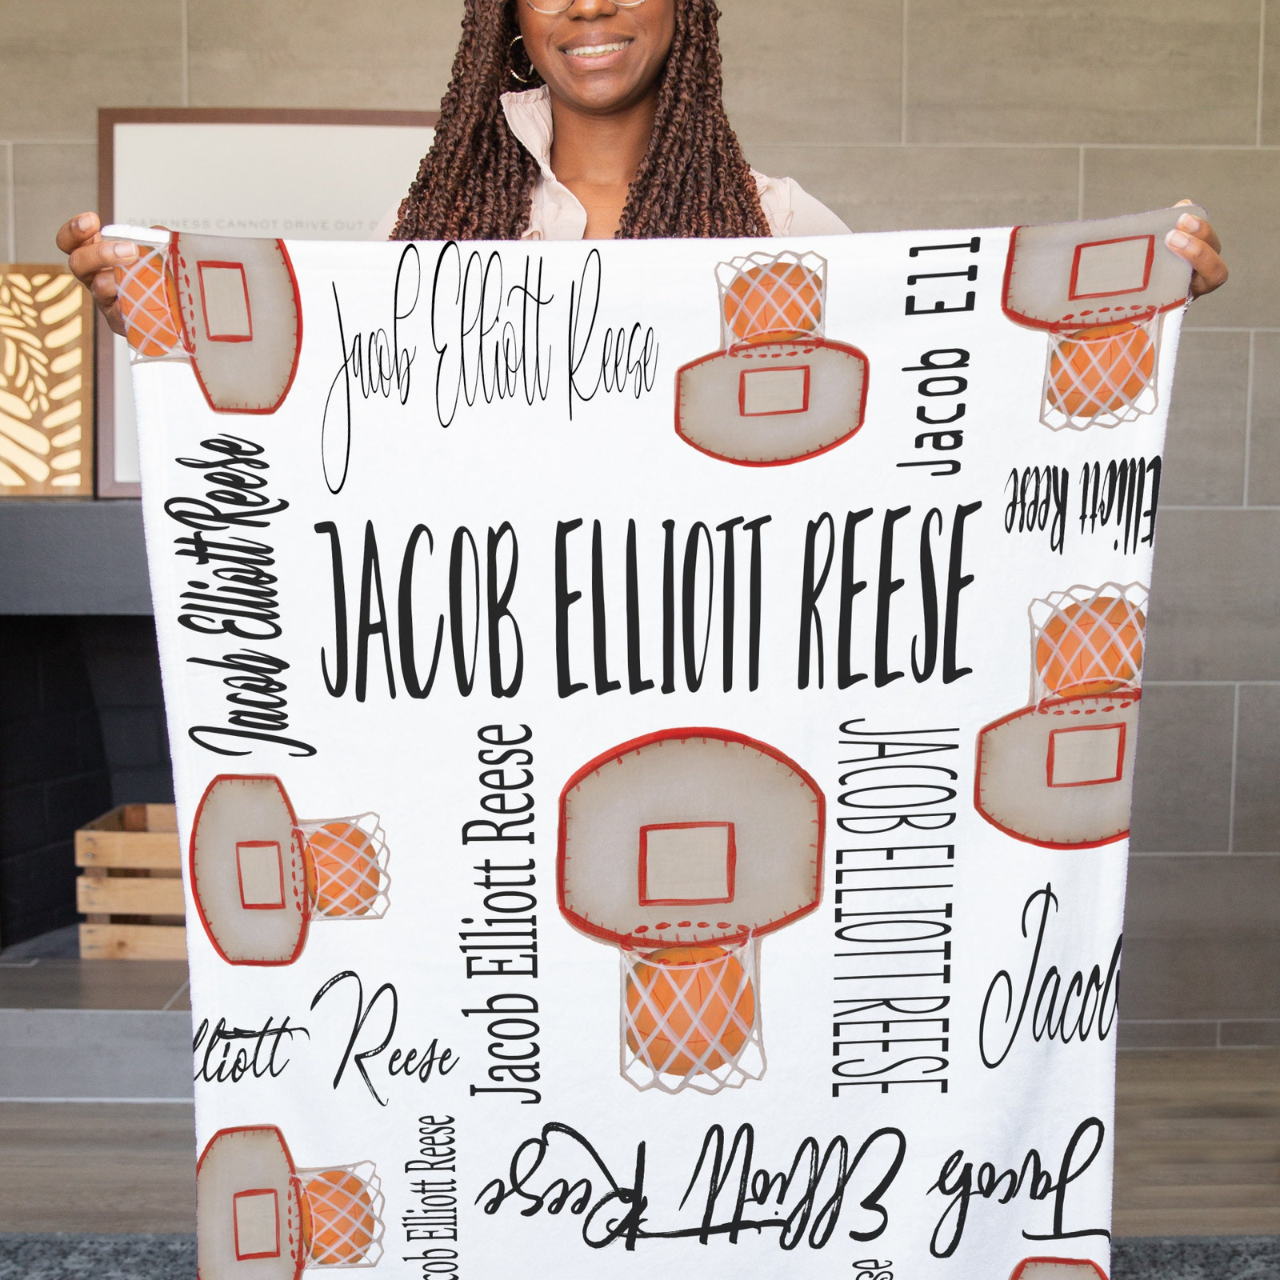 DARKNESS CANNOT DRIVE OUT D
Jacob Elliott Reese
Jacob Ell
Elliott Reese
Jacob Elliott Reese
JACOB ELLIOTT REESE
Jacob Elliott Reese
JACOB ELLIOTT REESE
Jacob
lliott Reese
cob Elliott Reese
Jacob Elliott Reese
se